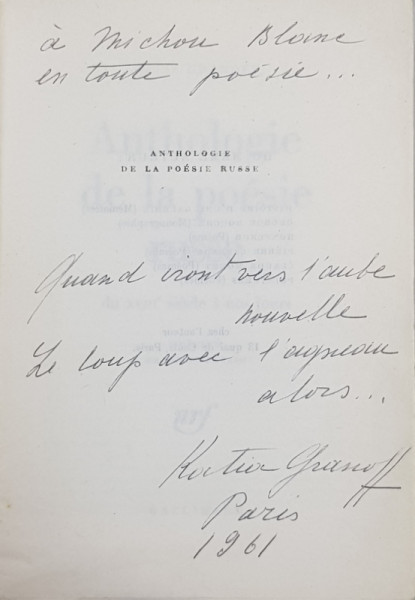 à Michou Blanc
en toute poésie...
ANTHOLOGIE
DE LA POÉSIE RUSSE
Quand iront vers l'aube
nouvelle
Le loup avec l'agneau
alors...
Katia Granoff
Paris
1961